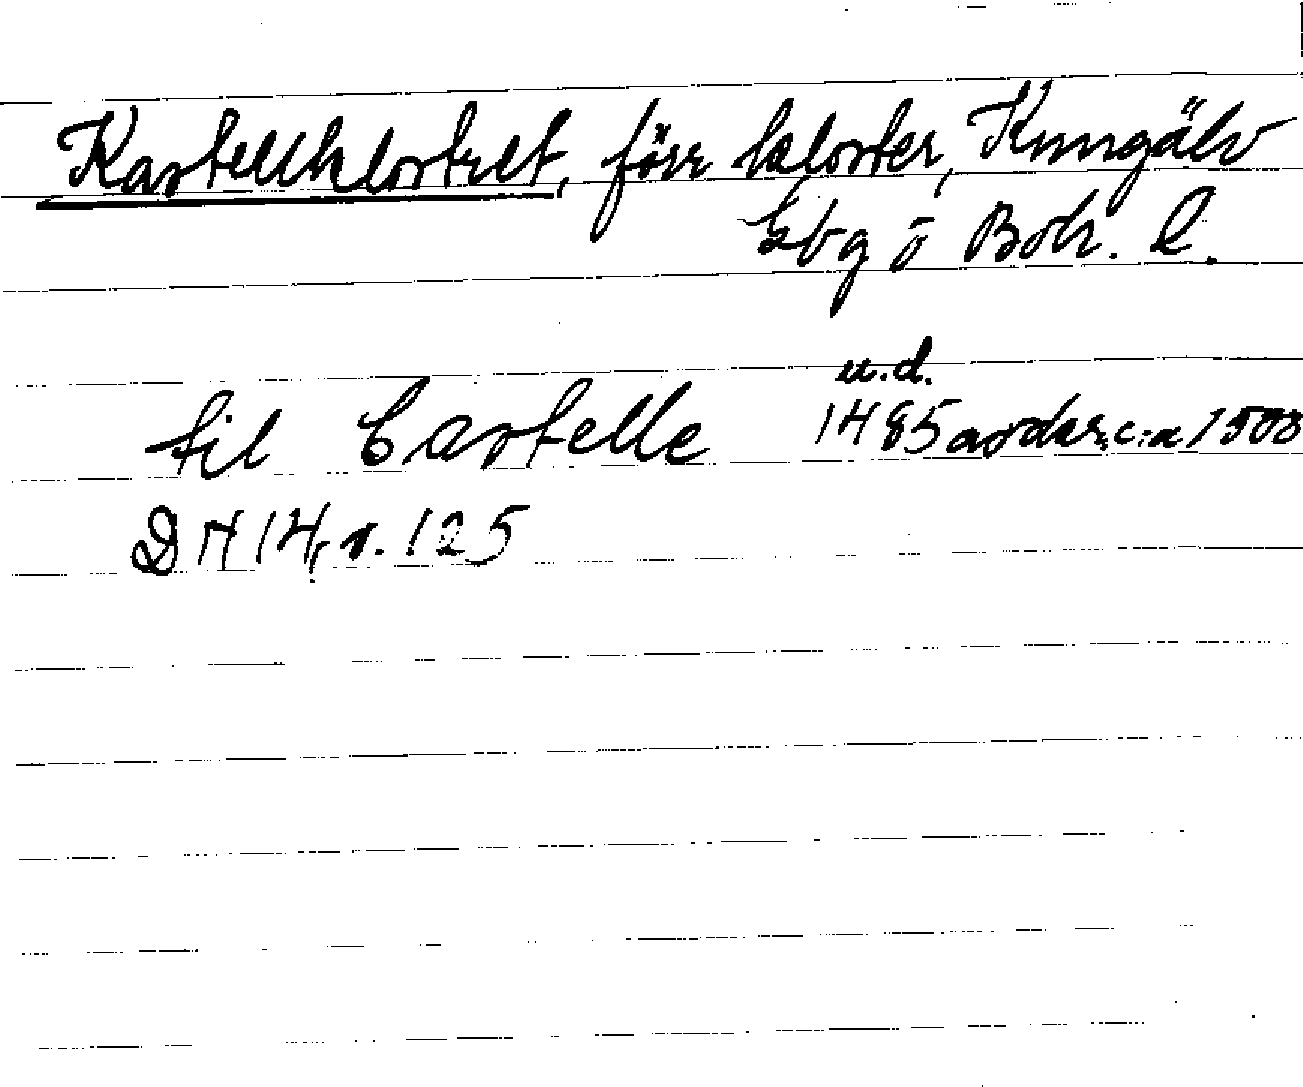 Kastellklostret, förr kloster, Kungälv
Gbg o Boh. l.
u.d.
til Castelle 1485 avskr. c:a 1500
DN 14, s. 125